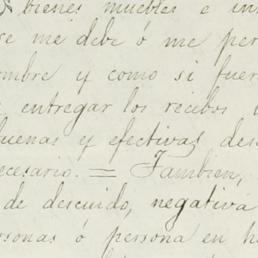 bienes muebles e in
se me debe ó me per
ombre y como si fuer
entregar los recibos
buenas y efectivas des
ecesario. = Tambien,
de descuido, negativa
rsonas ó persona en h